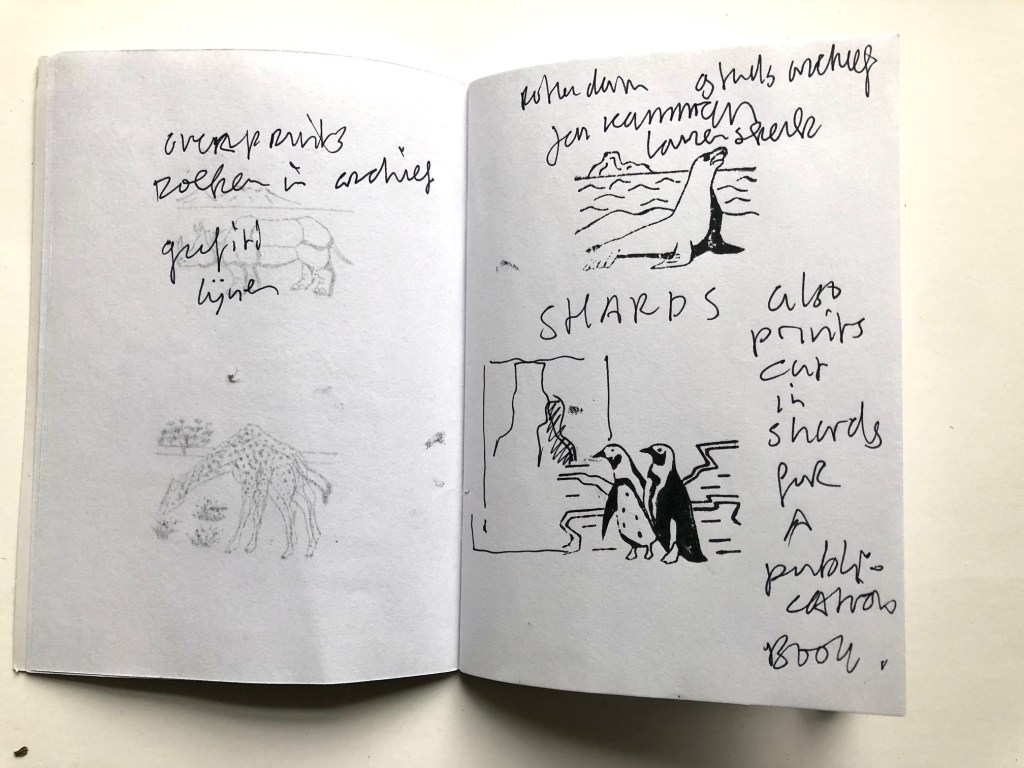 overprints
zoeken in archief
grefiti
lijnen
rotterdam stads archief
jan kamman
SHARDS
also
prints
cut
in
shards
for
A
publi-
cation
BOOK.